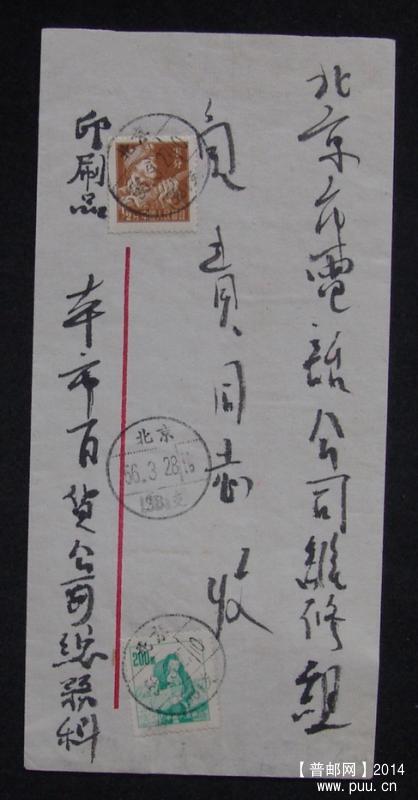 北京市電話公司維修組
負責同志 收
印刷品
本市百货公司總務科
北京
56.3.28.16
北京
北京
200
【普邮网】2014
www.puu.cn